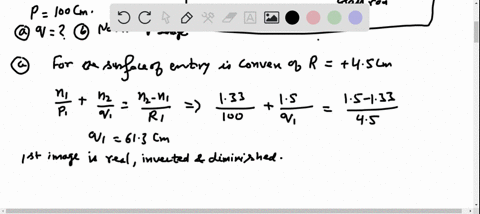 P = 100 Cm.
ⓐ q = ? ⓑ
ⓐ For surface of entry is Convex of R = +4.5cm
n₁/P₁ + n₂/q₁ = n₂-n₁/R₁ ⇒ 1.33/100 + 1.5/q₁ = 1.5-1.33/4.5
q₁ = 61.3 Cm
1st image is real, inverted & diminished.